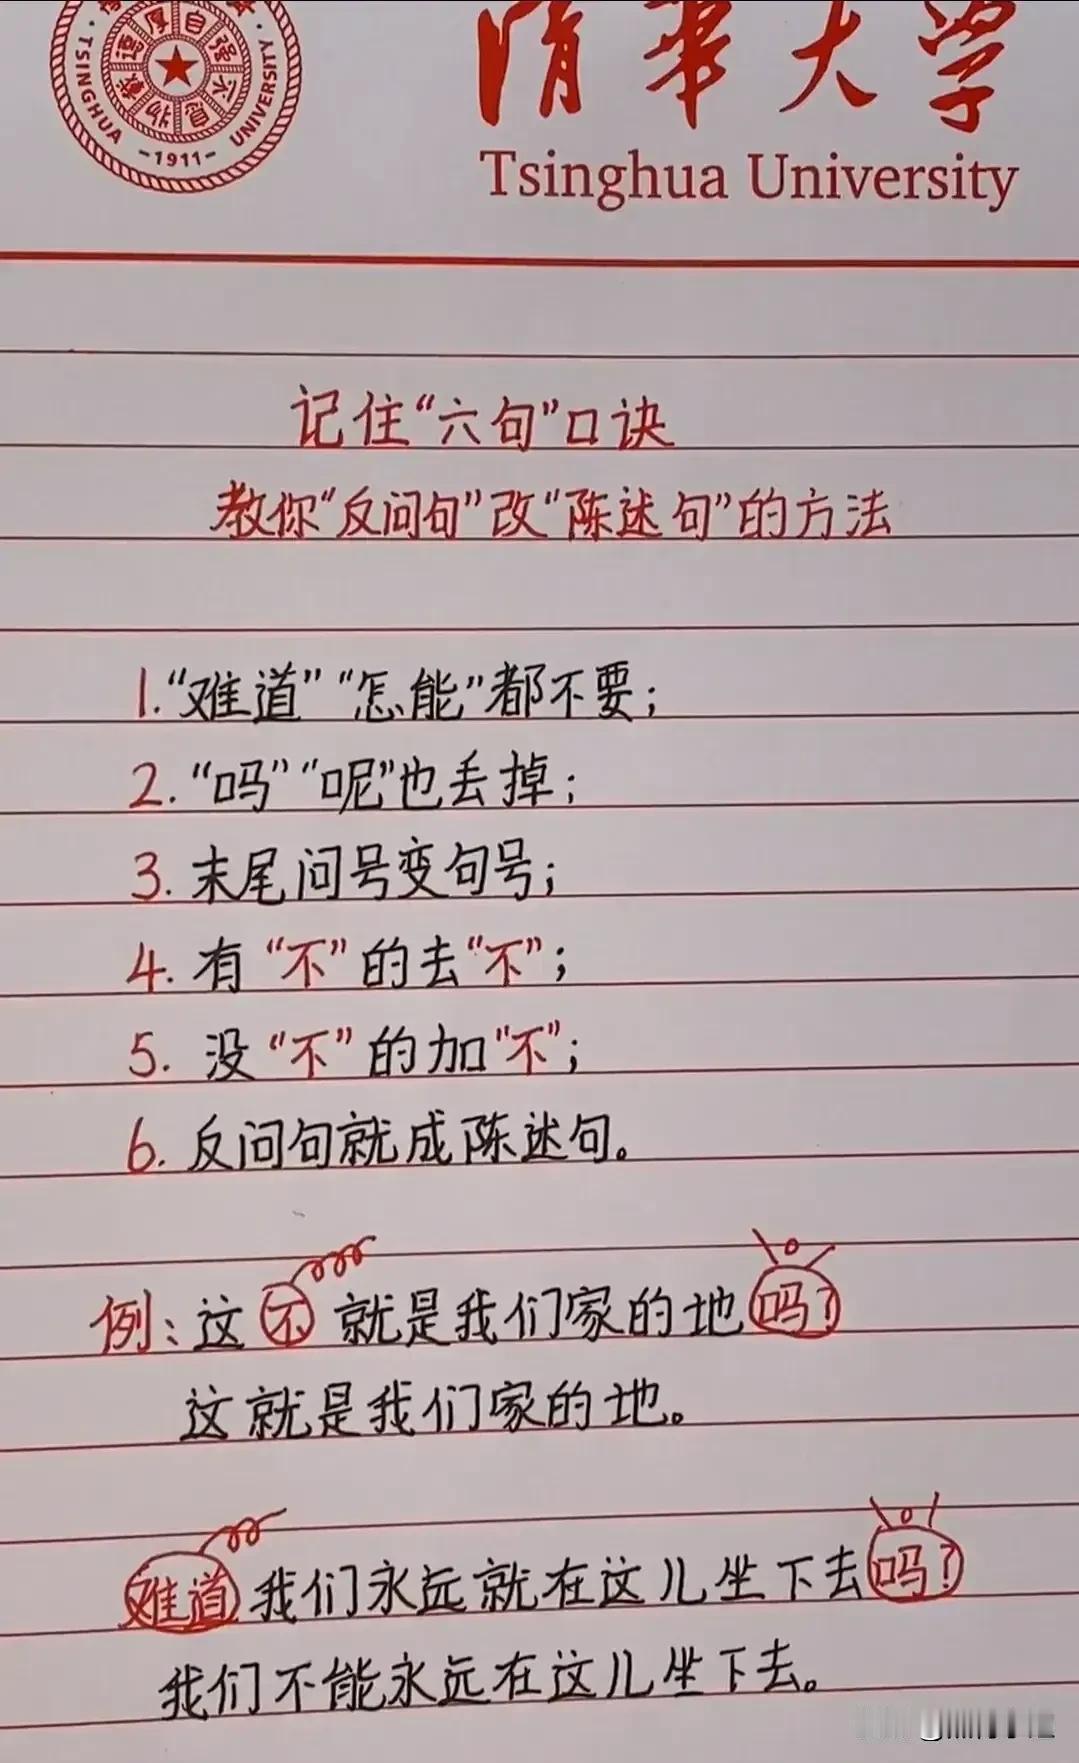 自强不息
厚德载物
TSINGHUA UNIVERSITY
-1911-
清华大学
Tsinghua University
记住“六句”口诀
教你“反问句”改“陈述句”的方法
1.“难道”“怎能”都不要;
2.“吗”“呢”也丢掉;
3.末尾问号变句号;
4.有“不”的去“不”;
5.没“不”的加“不”;
6.反问句就成陈述句。
例:这不就是我们家的地吗?
这就是我们家的地。
难道我们永远就在这儿坐下去吗?
我们不能永远在这儿坐下去。